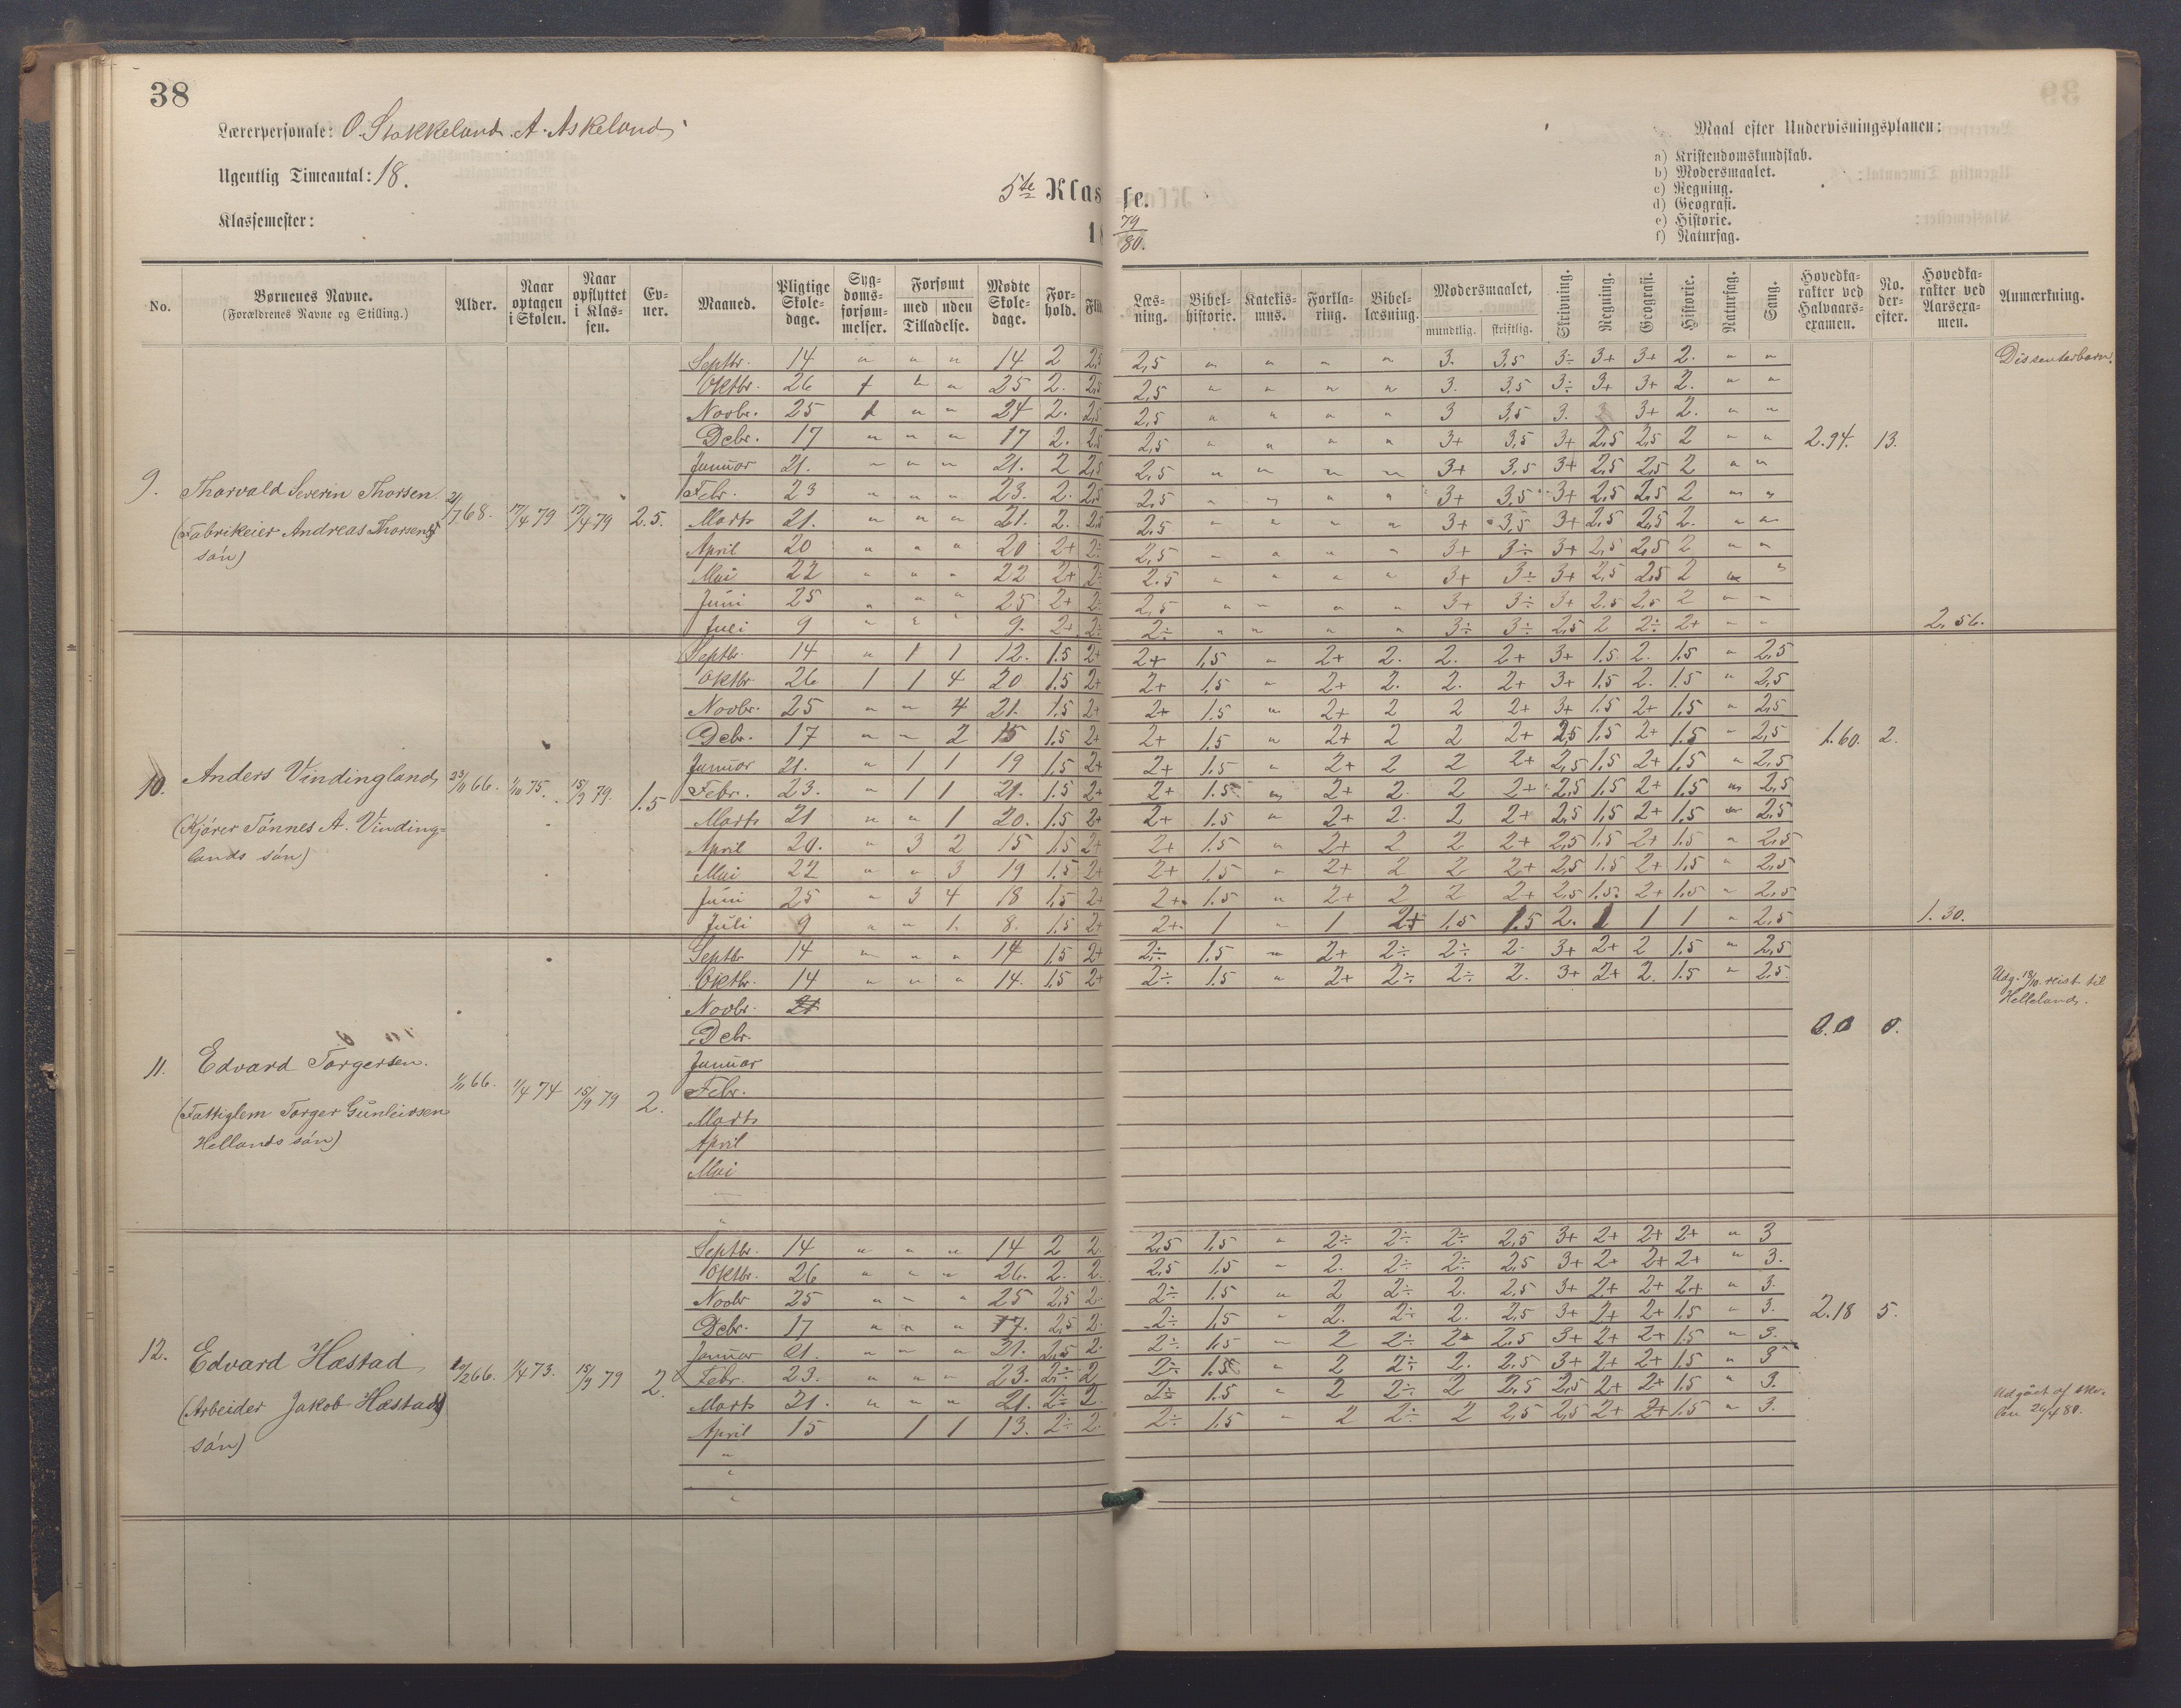 38
Lærerpersonale: O. Stokkeland. A. Askeland
Ugentlig Timeantal: 18.
Klassemester:
5te Klasse.
18 79/80.
Maal efter Undervisningsplanen:
a) Kristendomskundskab.
b) Modersmaalet.
c) Regning.
d) Geografi.
e) Historie.
f) Naturfag.
No. | Børnenes Navne. (Forældrenes Navne og Stilling.) | Alder. | Naar optagen i Skolen. | Naar opflyttet i Klassen. | Evner. | Maaned. | Pligtige Skoledage. | Sygdomsforsømmelser. | Forsømt med uden Tilladelse. | Mødte Skoledage. | Forhold. | Fli | Læsning. | Bibelhistorie. | Katekismus. | Forklaring. | Bibellæsning. | Modersmaalet, mundtlig. skriftlig. | Skrivning. | Regning. | Geografi. | Historie. | Naturfag. | Sang. | Hovedkarakter ved Halvaarsexamen. | No. derefter. | Hovedkarakter ved Aarsexamen. | Anmærkning.
9. Thorvald Severin Thorsen. (Fabrikeier Andreas Thorsens søn) 21/7 68. 17/4 79 17/4 79 2.5.
Septbr. 14 " " " 14 2 2,5 2,5 " " " " 3. 3,5 3÷ 3+ 3+ 2. " " Dissenterbarn.
Oktbr. 26 1 " " 25 2. 2,5 2,5 " " " " 3. 3,5 3÷ 3+ 3+ 2. " "
Novbr. 25 1 " " 24 2. 2,5 2,5 " " " " 3 3,5 3. 3 3+ 2. " "
Debr. 17 " " " 17 2. 2,5 2,5 " " " " 3+ 3,5 3+ 2,5 2,5 2 " " 2.94. 13.
Januar 21. " " " 21. 2 2,5 2,5 " " " " 3+ 3,5 3+ 2,5 2,5 2 " "
Febr. 23 " " " 23. 2. 2,5 2,5 " " " " 3+ 3,5 3+ 2,5 2,5 2 " "
Marts 21. " " " 21. 2. 2,5 2,5 " " " " 3+ 3,5 3+ 2,5 2,5 2. " "
April 20 " " " 20 2+ 2÷ 2,5 " " " " 3+ 3÷ 3+ 2,5 2,5 2 " "
Mai 22 " " " 22 2+ 2÷ 2.5 " " " " 3+ 3÷ 3+ 2,5 2,5 2 " "
Juni 25 " " " 25 2+ 2÷ 2,5 " " " " 3+ 3÷ 3+ 2.5 2,5 2 " "
Juli 9 " " " 9. 2+ 2÷ 2÷ " " " " 3÷ 3÷ 2,5 2 2÷ 2+ " " 2.56.
10. Anders Vindingland, (Kjører Tønnes A. Vindinglands søn) 23/11 66. 75. 15/9 79. 1.5
Septbr. 14 " 1 1 12. 1.5 2+ 2+ 1,5 " 2+ 2. 2. 2+ 3+ 1.5 2. 1.5 " 2,5
Oktbr 26 1 1 4 20 1.5 2+ 2+ 1,5 " 2+ 2. 2. 2+ 3+ 1.5 2. 1.5 " 2,5
Novbr. 25 " " 4 21. 1,5 2+ 2+ 1.5 " 2+ 2 2 2+ 3+ 1.5 2+ 1,5 " 2,5
Debr. 17 " " 2 15 1.5 2+ 2+ 1,5 " 2+ 2 2 2+ 2,5 1,5 2+ 1.5 " 2,5 1.60. 2.
Januar 21. " 1 1 19 1,5 2+ 2+ 1.5 " 2+ 2 2 2+ 2,5 1,5 2+ 1,5 " 2,5
Febr. 23. " 1 1 21. 1.5 2+ 2+ 1.5 " 2+ 2. 2 2+ 2,5 1.5 2+ 1,5 " 2,5
Marts 21 " " 1 20. 1.5 2+ 2+ 1.5 " 2+ 2. 2 2+ 2,5 1,5 2+ 1,5 " 2,5
April 20. " 3 2 15 1.5 2+ 2+ 1.5 " 2+ 2 2 2+ 2,5 1.5 2+ 1.5 " 2,5
Mai 22 " " 3 19 1.5 2+ 2+ 1.5 " 2+ 2 2 2+ 2,5 1.5 2+ 1,5 " 2,5
Juni 25 " 3 4 18 1,5 2+ 2+ 1.5 " 2+ 2 2 2+ 2,5 1.5 2+ 1,5 " 2,5
Juli 9 " " 1. 8. 1.5 2+ 2+ 1 " 1 2+ 1.5 1.5 2. 1 1 1 " 2.5 1.30.
11. Edvard Torgersen. (Fattiglem Torger Gunleivsen Hellands søn) 66. 1/4 74 15/9 79 2.
Septbr 14 " " " 14 1.5 2+ 2÷ 1.5 " 2+ 2÷ 2÷ 2. 3+ 2+ 2 1.5 " 2,5
Oktbr. 14 " " " 14. 1.5 2+ 2÷ 1.5 " 2+ 2÷ 2÷ 2. 3+ 2+ 2. 1.5 " 2.5 Udg. 18/10 reist til Helleland.
Novbr. 21
Debr. 0.0 0.
Januar
Febr.
Marts
April
Mai
"
12. Edvard Hæstad, (Arbeider Jakob Hæstads søn) 66. 1/4 73. 15/9 79 2.
Septbr. 14 " " " 14 2 2. 2,5 1.5 " 2÷ 2÷ 2÷ 2,5 3+ 2+ 2+ 2+ " 3
Oktbr. 26 " " " 26. 2. 2. 2,5 1.5 " 2. 2÷ 2÷ 2,5 3+ 2+ 2+ 2+ " 3.
Novbr 25 " " " 25 2,5 2. 2÷ 1.5 " 2 2÷ 2. 2.5 3+ 2+ 2+ 2+ " 3.
Debr. 17 " " " 17. 2,5 2. 2÷ 1,5 " 2. 2÷ 2. 2,5 3+ 2+ 2+ 1.5 " 3. 2.18 5.
Januar 21. " " " 21. 2,5 2. 2÷ 1.5 " 2 2÷ 2+ 2,5 3+ 2+ 2+ 1.5 " 3.
Febr. 23. " " " 23. 2÷ 2 2÷ 1.5 " 2 2÷ 2. 2.5 3+ 2+ 2+ 1.5 " 3
Marts 21. " " " 21. 2÷ 2. 2÷ 1.5 " 2 2÷ 2 2.5 2,5 2+ 2+ 1.5 " 3.
April 15 1 1 13. 2÷ 2. 2÷ 1.5 " 2 2÷ 2 2,5 2,5 2+ 2+ 1.5 " 3. Udgået af skolen 80.
"
"
"